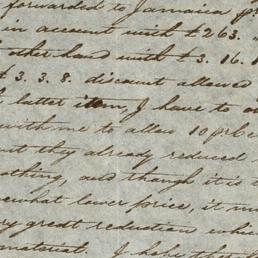 forwarded to Jamaica
in account with £263.
other hand with £3.16.1
£3.3.8. discount allowed
latter item, I have to
with me to allow 10 pr Ce
but they already reduced
othing, and though it is
ewhat lower price, it m
ry great reduction whi
material. I hope the